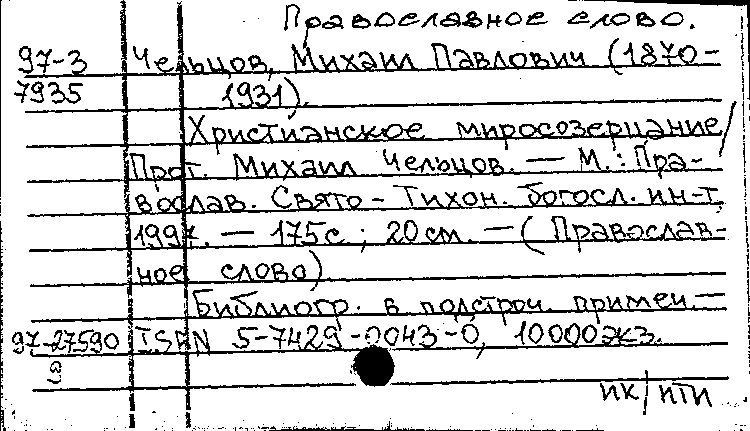 Православное слово.
97-3 Чельцов, Михаил Павлович (1870-
7935 1931).
Христианское миросозерцание/
Прот. Михаил Чельцов. — М.: Пра-
вослав. Свято-Тихон. богосл. ин-т,
1997. — 175 с.; 20 см. — (Православ-
ное слово)
Библиогр. в подстроч. примеч. —
97-27590 ISBN 5-7429-0043-0, 10000 экз.
9
ПК/ПТИ